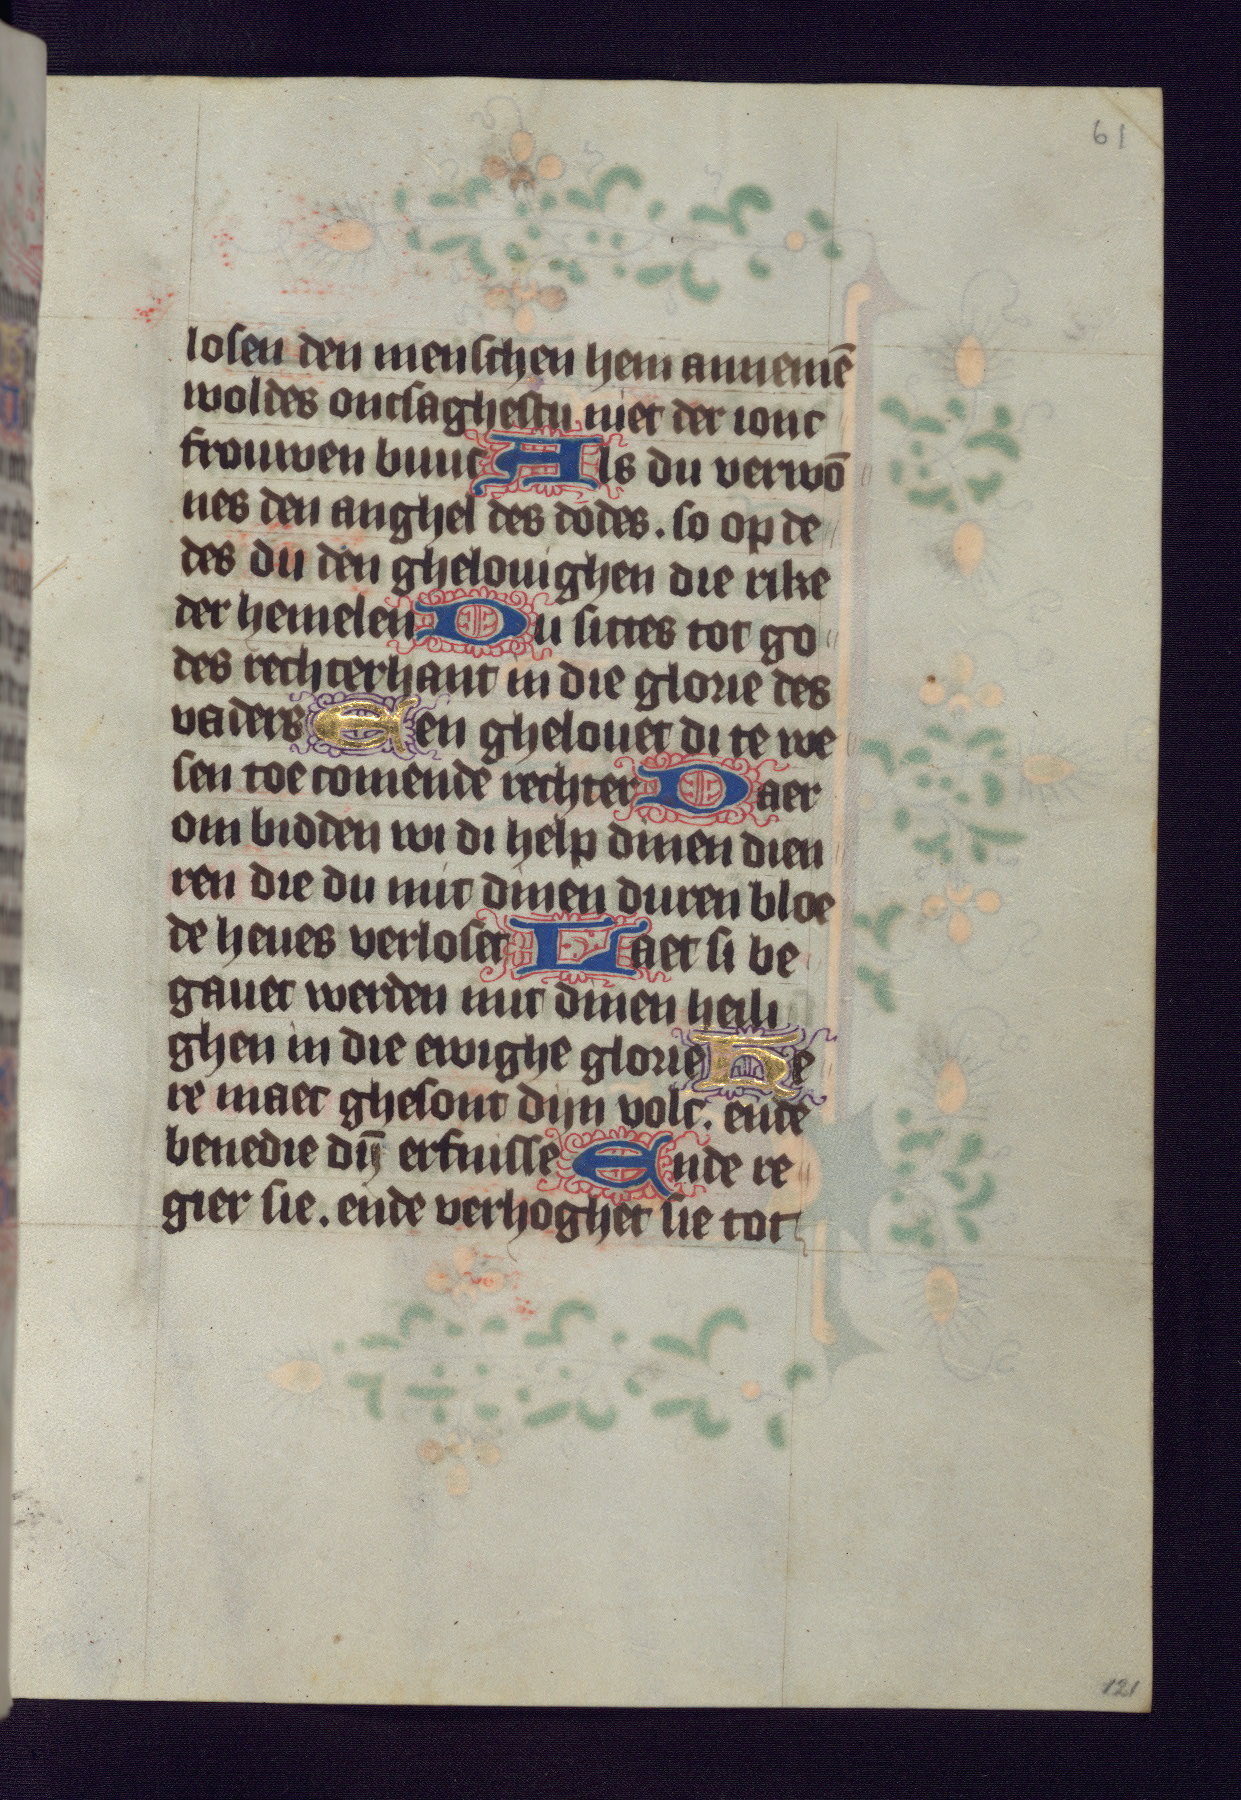 61
losen den menschen hem annemē
woldes ontsaghestu niet der ionc
frouwen buuc Als du verwō
nes den anghel des dodes. so op de
des du den ghelouighen die rike
der hemelen Du sittes tot go
des rechterhant in die glorie des
vaders Een ghelouet di te we
sen toe comende rechter Daer
om bidden wi di help dinen dien
ren die du mit dinen duren bloe
de heues verloset Laet si be
gauet werden mit dinen heili
ghen in die ewighe glorie He
re maec ghesont dijn volc. ende
benedie dij̄ erfnisse Ende re
gier sie. ende verhoghet sie tot
121